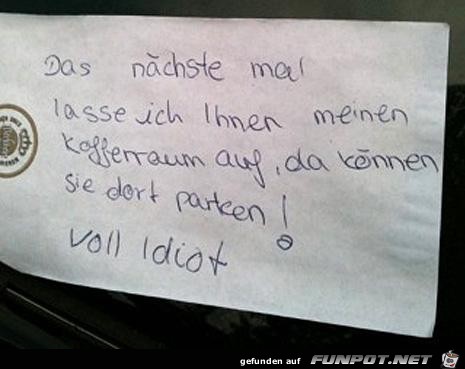 Das nächste mal
lasse ich Ihnen meinen
Kofferraum auf, da können
sie dort parken!
Voll Idiot
gefunden auf FUNPOT.NET